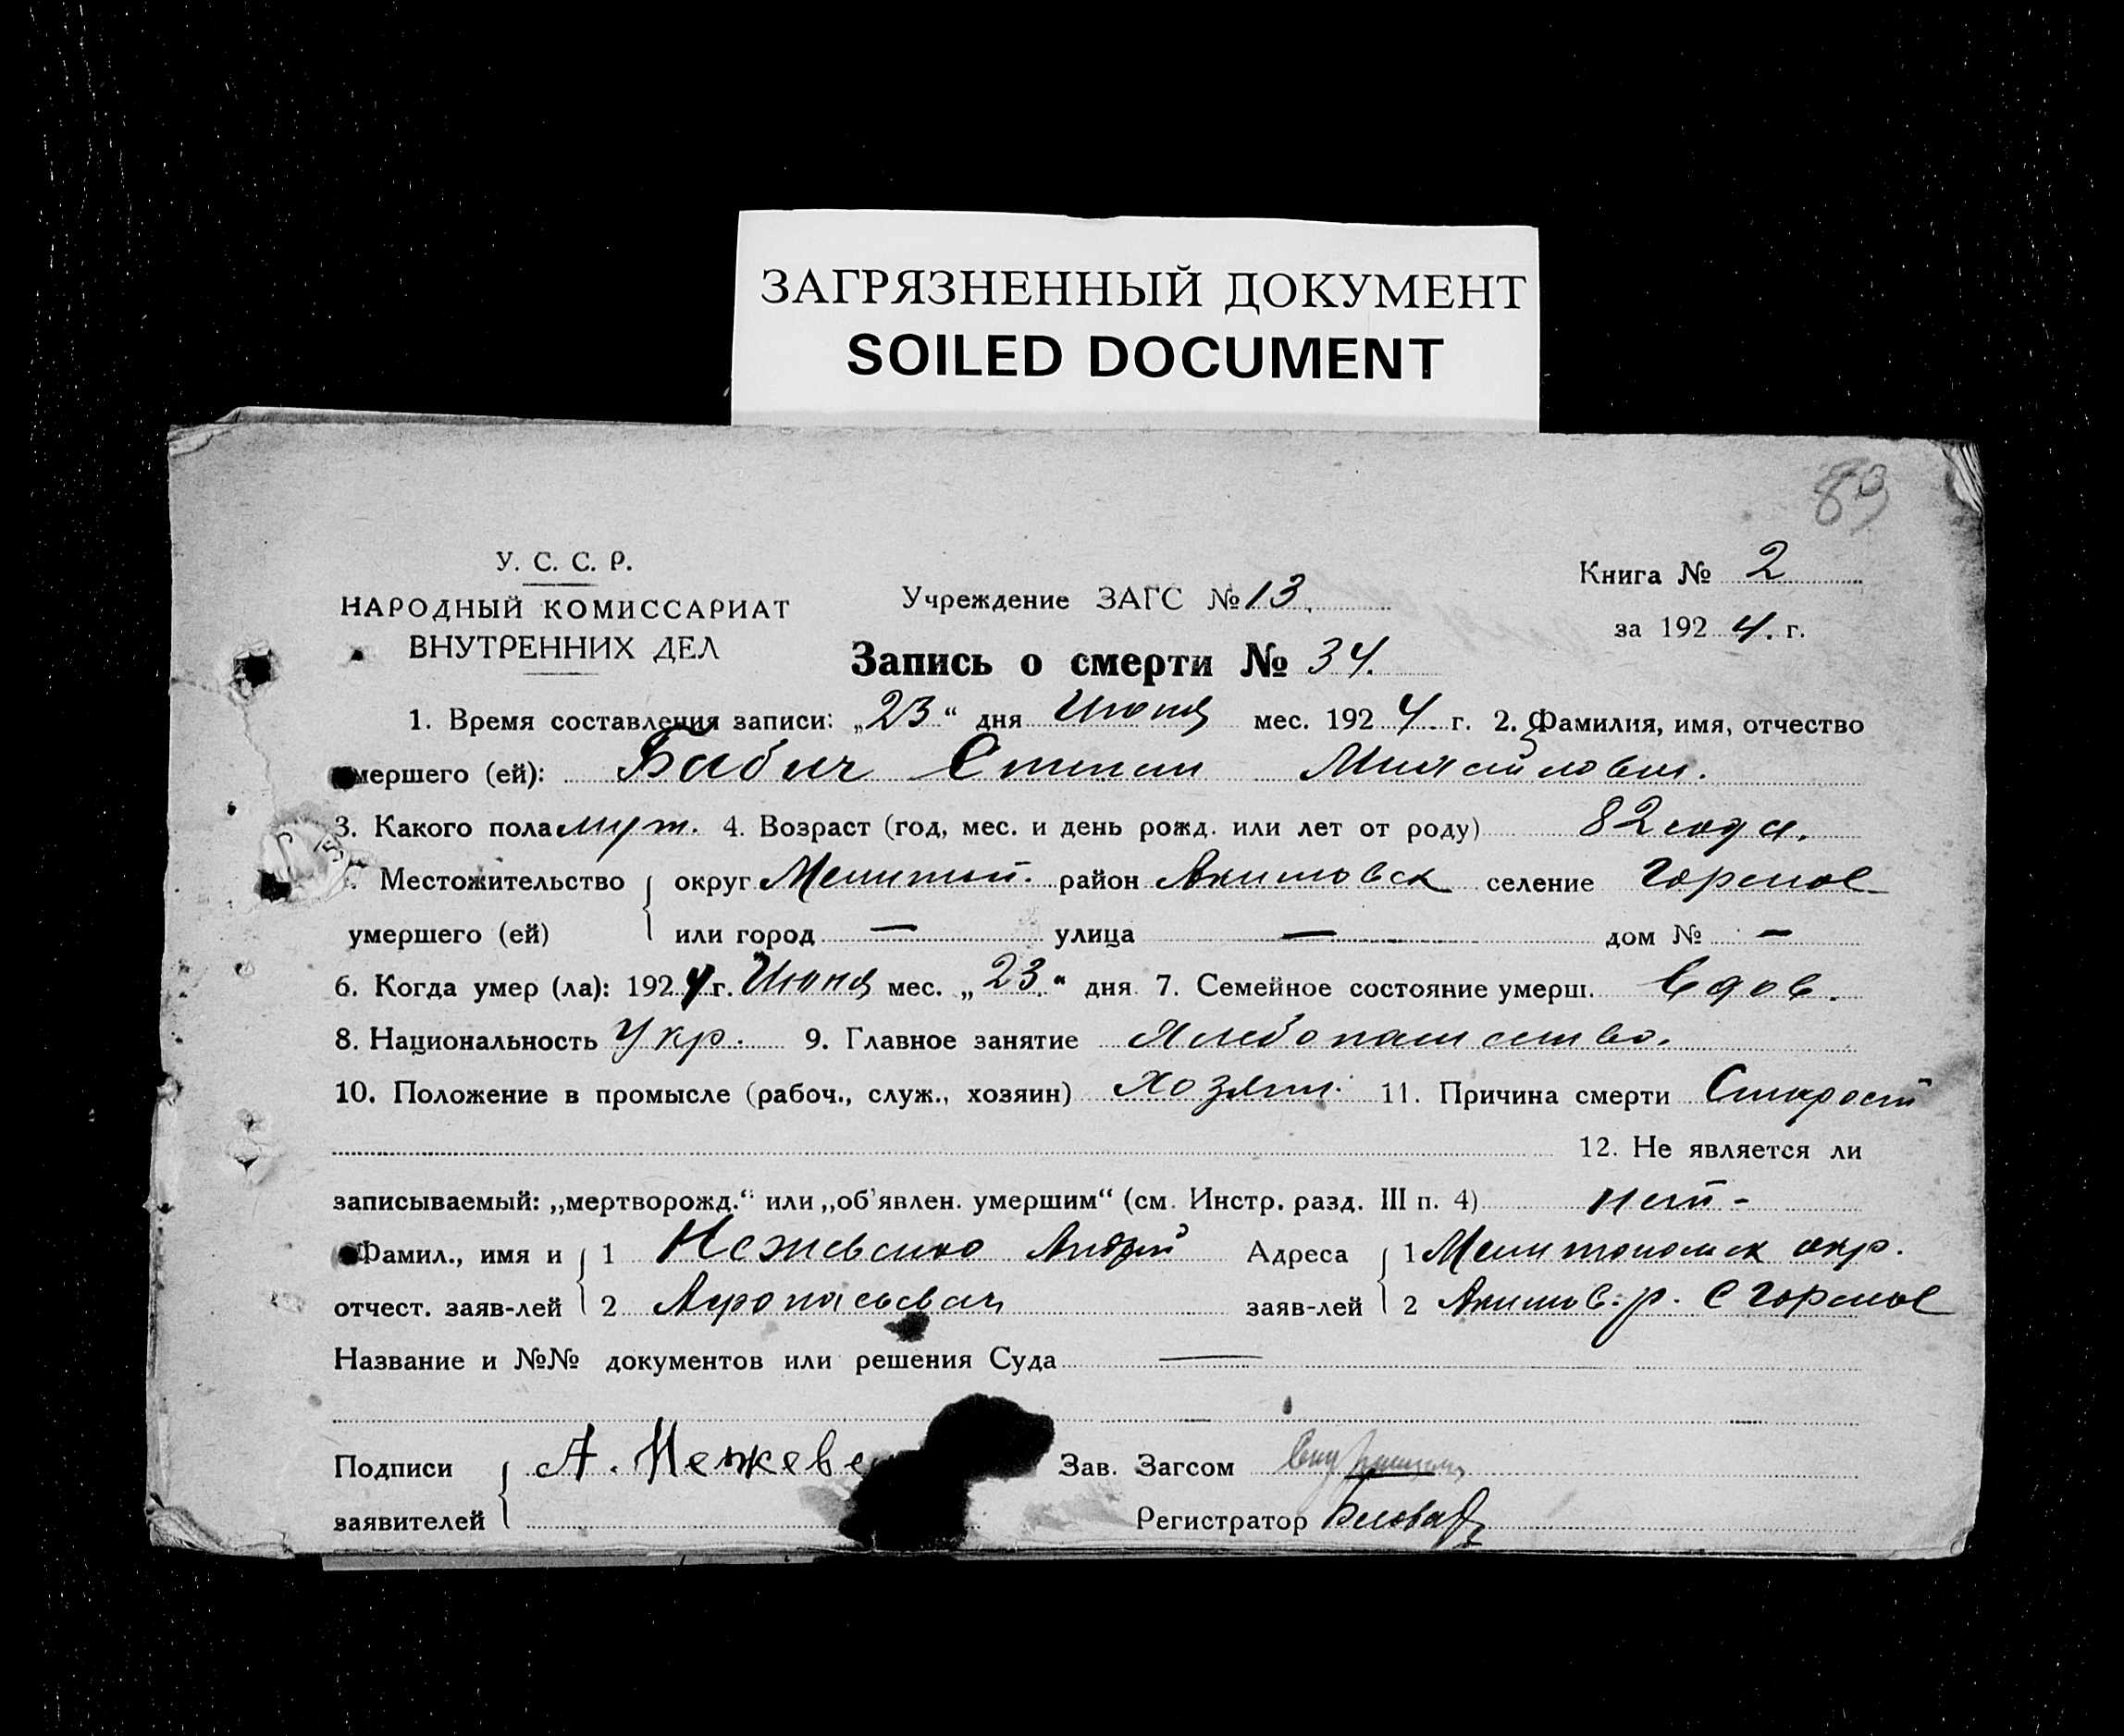 ЗАГРЯЗНЕННЫЙ ДОКУМЕНТ
SOILED DOCUMENT
83
У. С. С. Р.
НАРОДНЫЙ КОМИССАРИАТ
ВНУТРЕННИХ ДЕЛ
Учреждение ЗАГС № 13.
Книга № 2
за 1924. г.
Запись о смерти № 34.
1. Время составления записи: „23“ дня Июня мес. 1924. г. 2. Фамилия, имя, отчество
умершего (ей): Бабич Степан Михайлович.
3. Какого пола муж. 4. Возраст (год, мес. и день рожд. или лет от роду) 82 года.
Местожительство округ Мелитоп. район Акимовск селение Горелое
умершего (ей) или город — улица — дом № —
6. Когда умер (ла): 1924 г. Июня мес. „23“ дня 7. Семейное состояние умерш. вдов.
8. Национальность Укр. 9. Главное занятие Хлебопашество.
10. Положение в промысле (рабоч., служ., хозяин) Хозяин. 11. Причина смерти Старост
12. Не является ли
записываемый: „мертворожд.“ или „об'явлен. умершим“ (см. Инстр. разд. III п. 4) нет -
Фамил., имя и 1 Нежевенко Андрей Адреса 1 Мелитопольск окр.
отчест. заяв-лей 2 заяв-лей 2 Акимов. р. С Горелое
Название и №№ документов или решения Суда —
Подписи А. Нежеве Зав. Загсом
заявителей Регистратор